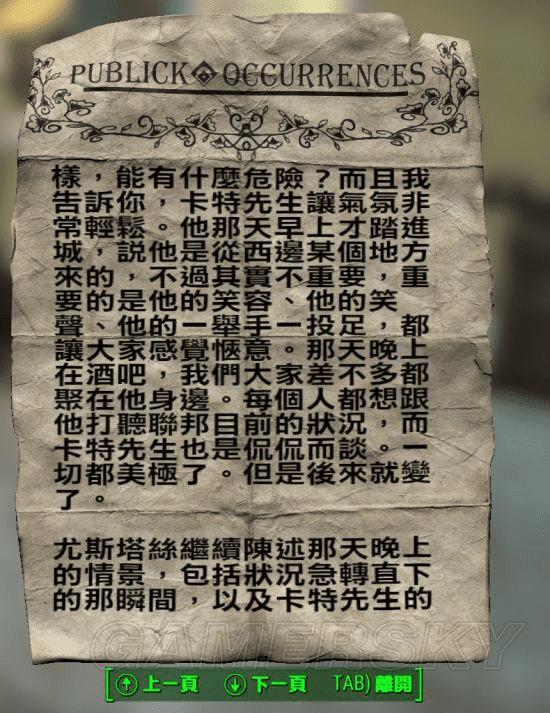 PUBLICK OCCURRENCES
樣，能有什麼危險？而且我
告訴你，卡特先生讓氣氛非
常輕鬆。他那天早上才踏進
城，說他是從西邊某個地方
來的，不過其實不重要，重
要的是他的笑容、他的笑
聲、他的一舉手一投足，都
讓大家感覺愜意。那天晚上
在酒吧，我們大家差不多都
聚在他身邊。每個人都想跟
他打聽聯邦目前的狀況，而
卡特先生也是侃侃而談。一
切都美極了。但是後來就變
了。
尤斯塔絲繼續陳述那天晚上
的情景，包括狀況急轉直下
的那瞬間，以及卡特先生的
GAMERSKY
上一頁 下一頁 TAB) 離開